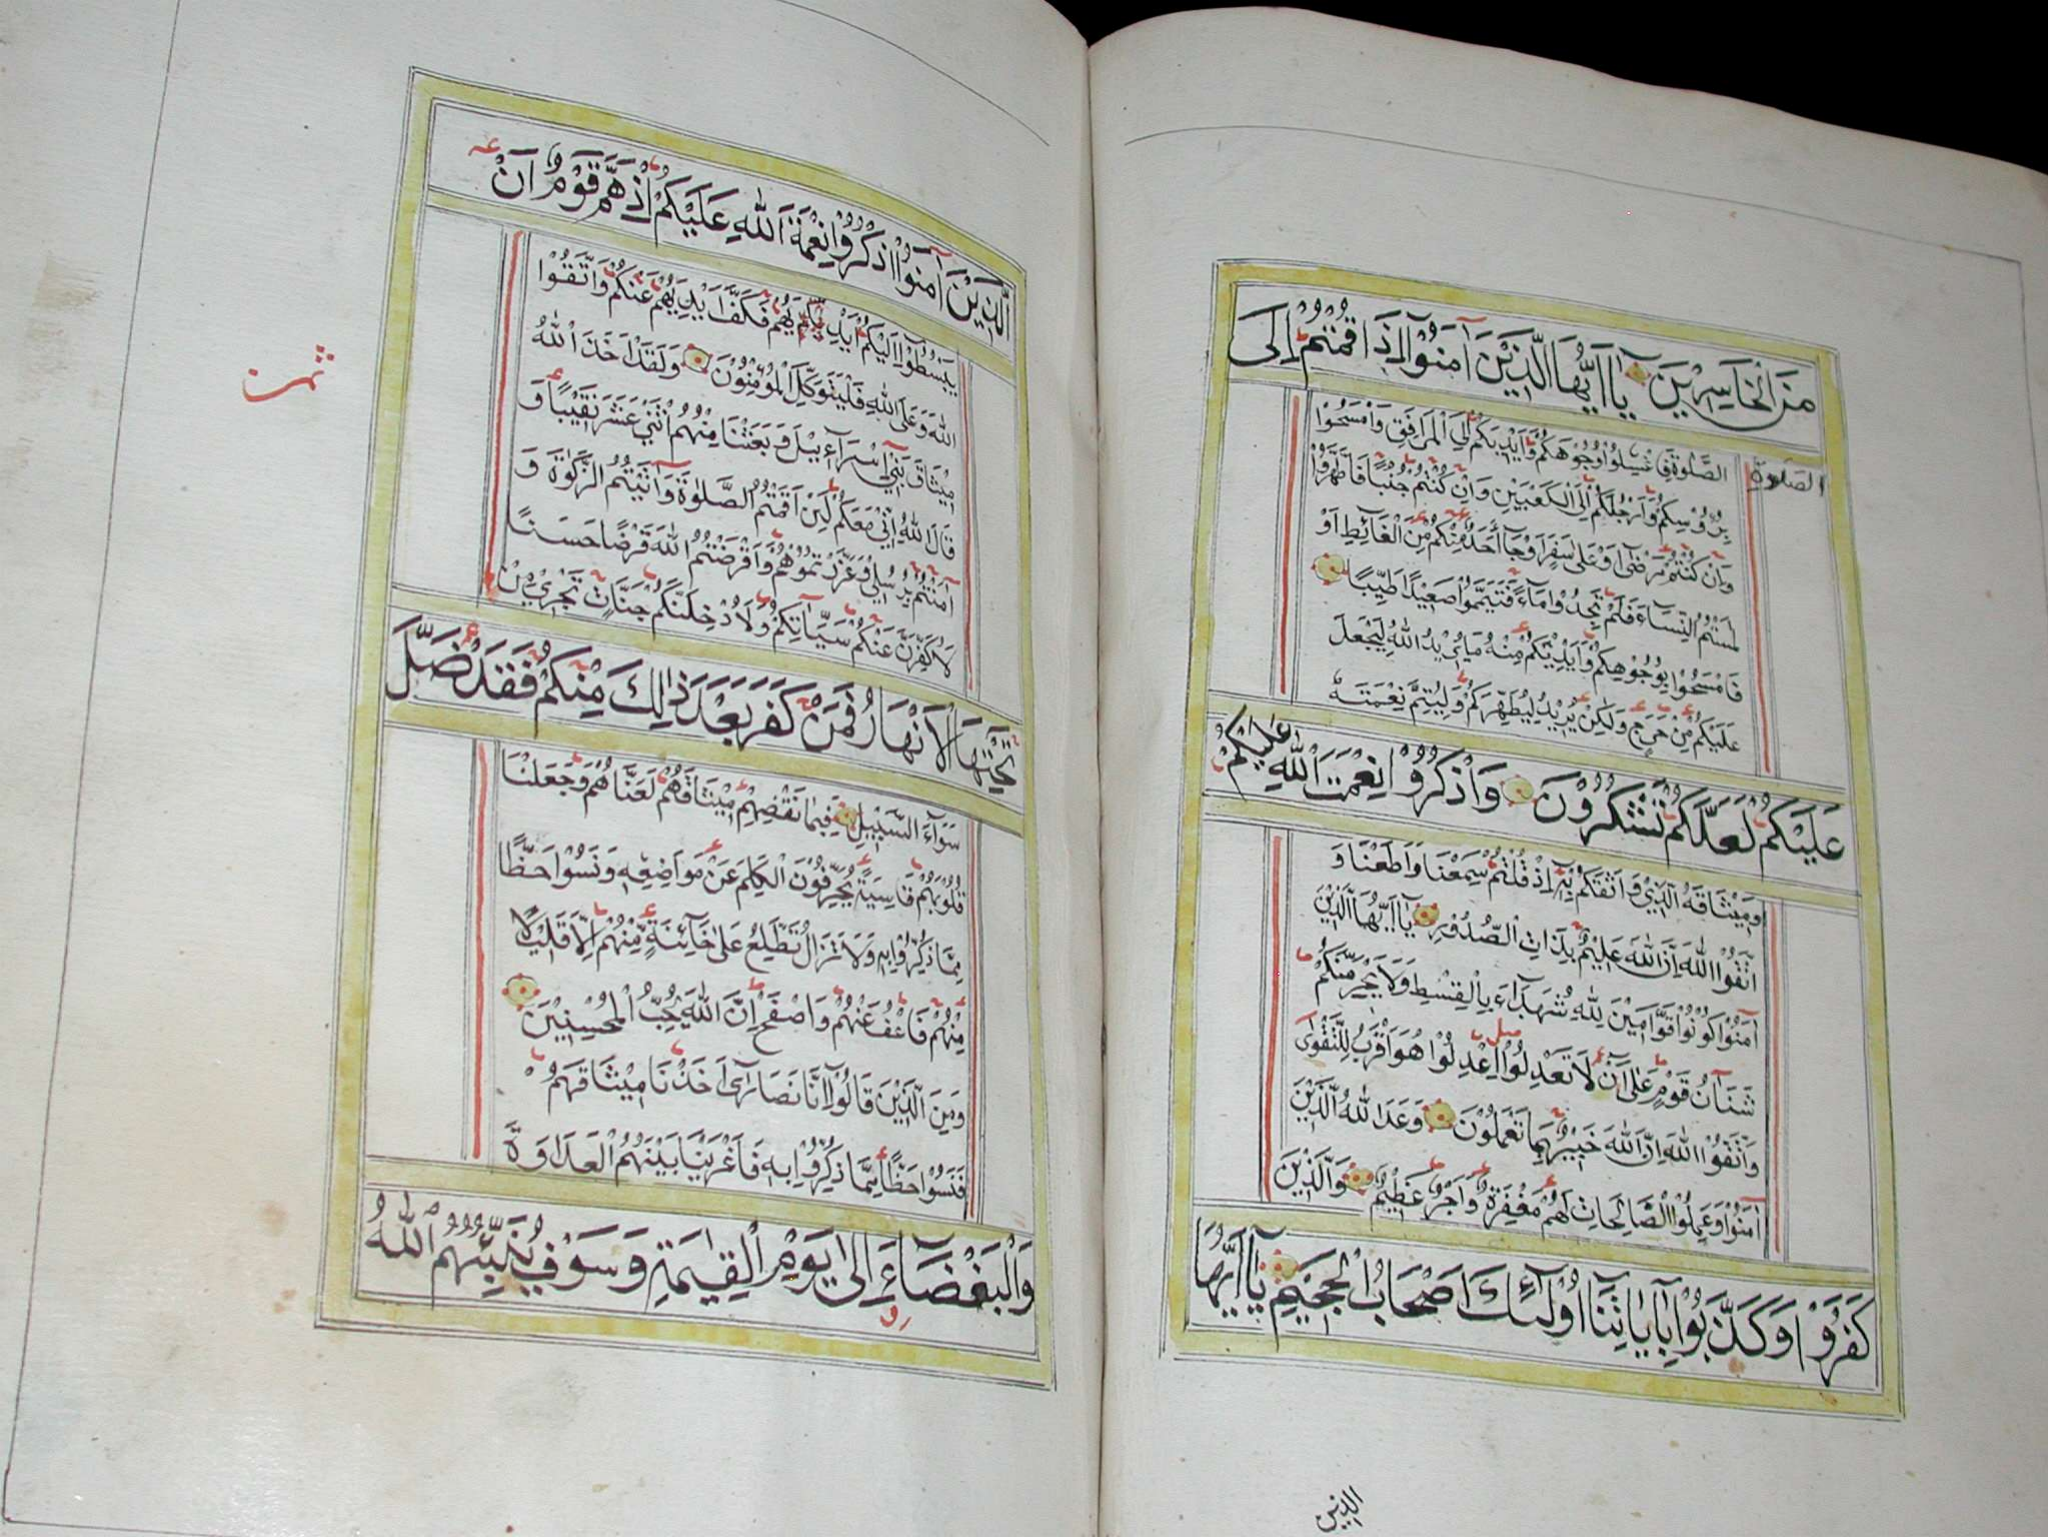 مِنَ الْخَاسِرِيْنَ يَا اَيُّهَا الَّذِيْنَ آمَنُوْا اِذَا قُمْتُمْ اِلَى
الصَّلٰوةِ فَاغْسِلُوْا وُجُوْهَكُمْ وَاَيْدِيَكُمْ اِلَى الْمَرَافِقِ وَامْسَحُوْا
الصلوة
بِرُؤُسِكُمْ وَاَرْجُلَكُمْ اِلَى الْكَعْبَيْنِ وَاِنْ كُنْتُمْ جُنُبًا فَاطَّهَّرُوْا
وَاِنْ كُنْتُمْ مَرْضٰى اَوْ عَلٰى سَفَرٍ اَوْ جَآءَ اَحَدٌ مِّنْكُمْ مِّنَ الْغَآئِطِ اَوْ
لٰمَسْتُمُ النِّسَآءَ فَلَمْ تَجِدُوْا مَآءً فَتَيَمَّمُوْا صَعِيْدًا طَيِّبًا
فَامْسَحُوْا بِوُجُوْهِكُمْ وَاَيْدِيْكُمْ مِنْهُ مَا يُرِيْدُ اللّٰهُ لِيَجْعَلَ
عَلَيْكُمْ مِّنْ حَرَجٍ وَلٰكِنْ يُرِيْدُ لِيُطَهِّرَكُمْ وَلِيُتِمَّ نِعْمَتَهُ
عَلَيْكُمْ لَعَلَّكُمْ تَشْكُرُوْنَ وَاذْكُرُوْا نِعْمَتَ اللّٰهِ عَلَيْكُمْ
وَمِيْثَاقَهُ الَّذِيْ وَاثَقَكُمْ بِهٖ اِذْ قُلْتُمْ سَمِعْنَا وَاَطَعْنَا وَ
اتَّقُوْا اللّٰهَ اِنَّ اللّٰهَ عَلِيْمٌ بِذَاتِ الصُّدُوْرِ يَا اَيُّهَا الَّذِيْنَ
آمَنُوْا كُوْنُوْا قَوَّامِيْنَ لِلّٰهِ شُهَدَآءَ بِالْقِسْطِ وَلَا يَجْرِمَنَّكُمْ
شَنَآنُ قَوْمٍ عَلٰى اَنْ لَا تَعْدِلُوْا اِعْدِلُوْا هُوَ اَقْرَبُ لِلتَّقْوٰى
وَاتَّقُوْا اللّٰهَ اِنَّ اللّٰهَ خَبِيْرٌ بِمَا تَعْمَلُوْنَ وَعَدَ اللّٰهُ الَّذِيْنَ
آمَنُوْا وَعَمِلُوا الصَّالِحَاتِ لَهُمْ مَغْفِرَةٌ وَاَجْرٌ عَظِيْمٌ وَالَّذِيْنَ
كَفَرُوْا وَكَذَّبُوْا بِآيَاتِنَا اُولٰٓئِكَ اَصْحَابُ الْجَحِيْمِ يَا اَيُّهَا
الذين
الَّذِيْنَ آمَنُوْا اذْكُرُوْا نِعْمَةَ اللّٰهِ عَلَيْكُمْ اِذْ هَمَّ قَوْمٌ اَنْ
يَبْسُطُوْا اِلَيْكُمْ اَيْدِيَهُمْ فَكَفَّ اَيْدِيَهُمْ عَنْكُمْ وَاتَّقُوْا
اللّٰهَ وَعَلَى اللّٰهِ فَلْيَتَوَكَّلِ الْمُؤْمِنُوْنَ وَلَقَدْ اَخَذَ اللّٰهُ
ثمن
مِيْثَاقَ بَنِيْ اِسْرَآءِيْلَ وَبَعَثْنَا مِنْهُمُ اثْنَيْ عَشَرَ نَقِيْبًا وَ
قَالَ اللّٰهُ اِنِّيْ مَعَكُمْ لَئِنْ اَقَمْتُمُ الصَّلٰوةَ وَآتَيْتُمُ الزَّكٰوةَ وَ
آمَنْتُمْ بِرُسُلِيْ وَعَزَّرْتُمُوْهُمْ وَاَقْرَضْتُمُ اللّٰهَ قَرْضًا حَسَنًا
لَاُكَفِّرَنَّ عَنْكُمْ سَيِّآتِكُمْ وَلَاُدْخِلَنَّكُمْ جَنَّاتٍ تَجْرِيْ مِنْ
تَحْتِهَا الْاَنْهَارُ فَمَنْ كَفَرَ بَعْدَ ذٰلِكَ مِنْكُمْ فَقَدْ ضَلَّ
سَوَآءَ السَّبِيْلِ فَبِمَا نَقْضِهِمْ مِيْثَاقَهُمْ لَعَنَّاهُمْ وَجَعَلْنَا
قُلُوْبَهُمْ قَاسِيَةً يُحَرِّفُوْنَ الْكَلِمَ عَنْ مَوَاضِعِهٖ وَنَسُوْا حَظًّا
مِمَّا ذُكِّرُوْا بِهٖ وَلَا تَزَالُ تَطَّلِعُ عَلٰى خَآئِنَةٍ مِّنْهُمْ اِلَّا قَلِيْلًا
مِنْهُمْ فَاعْفُ عَنْهُمْ وَاصْفَحْ اِنَّ اللّٰهَ يُحِبُّ الْمُحْسِنِيْنَ
وَمِنَ الَّذِيْنَ قَالُوْا اِنَّا نَصَارٰى اَخَذْنَا مِيْثَاقَهُمْ
فَنَسُوْا حَظًّا مِمَّا ذُكِّرُوْا بِهٖ فَاَغْرَيْنَا بَيْنَهُمُ الْعَدَاوَةَ
وَالْبَغْضَآءَ اِلٰى يَوْمِ الْقِيٰمَةِ وَسَوْفَ يُنَبِّئُهُمُ اللّٰهُ